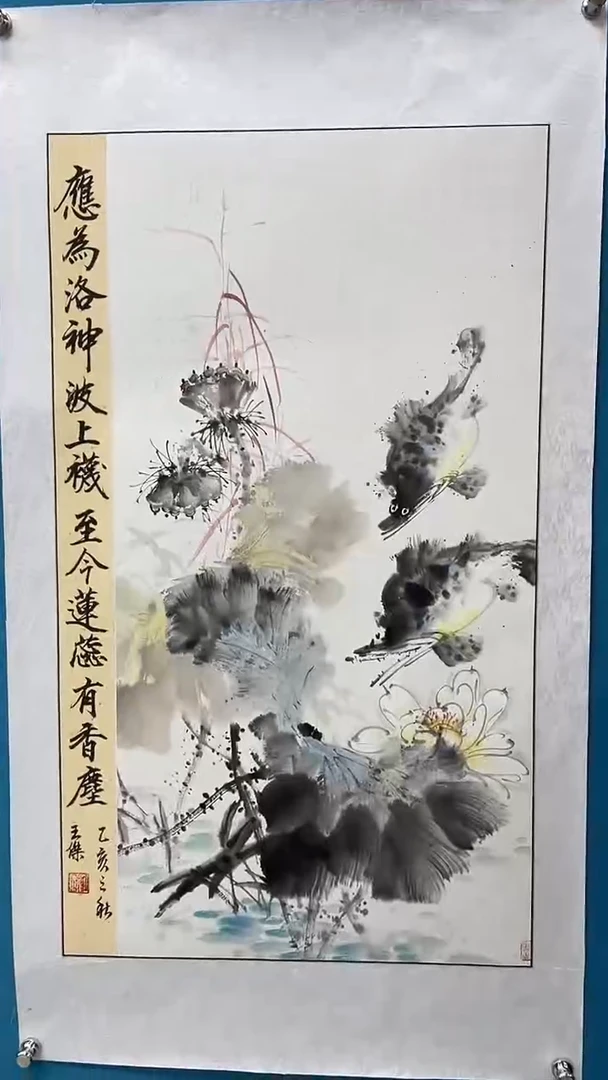 應為洛神波上襪至今蓮蕊有香塵
乙亥之秋
王傑